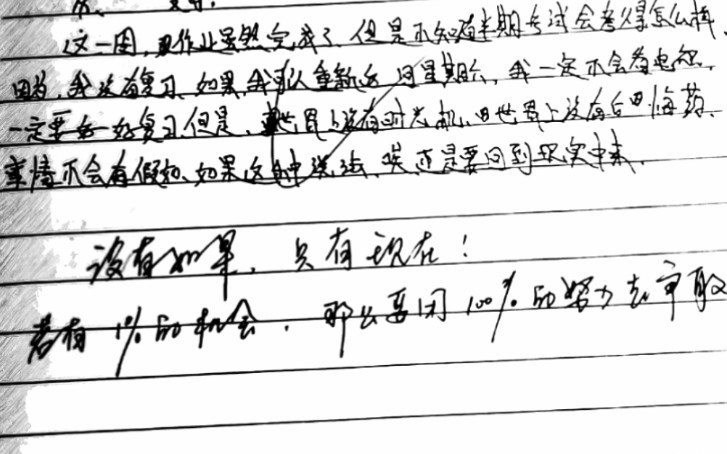 这一周，虽作业虽然完成了，但是不知道半期考试会考得怎么样，
因为，我没有复习，如果，我可以重新返回星期六，我一定不会看电视，
一定要好好复习，但是，世界上没有时光机，世界上没有后悔药，
事情不会有假如、如果这种说法，唉，还是要回到现实中来。
没有如果，只有现在！
若有1%的机会，那么要用100%的努力去争取